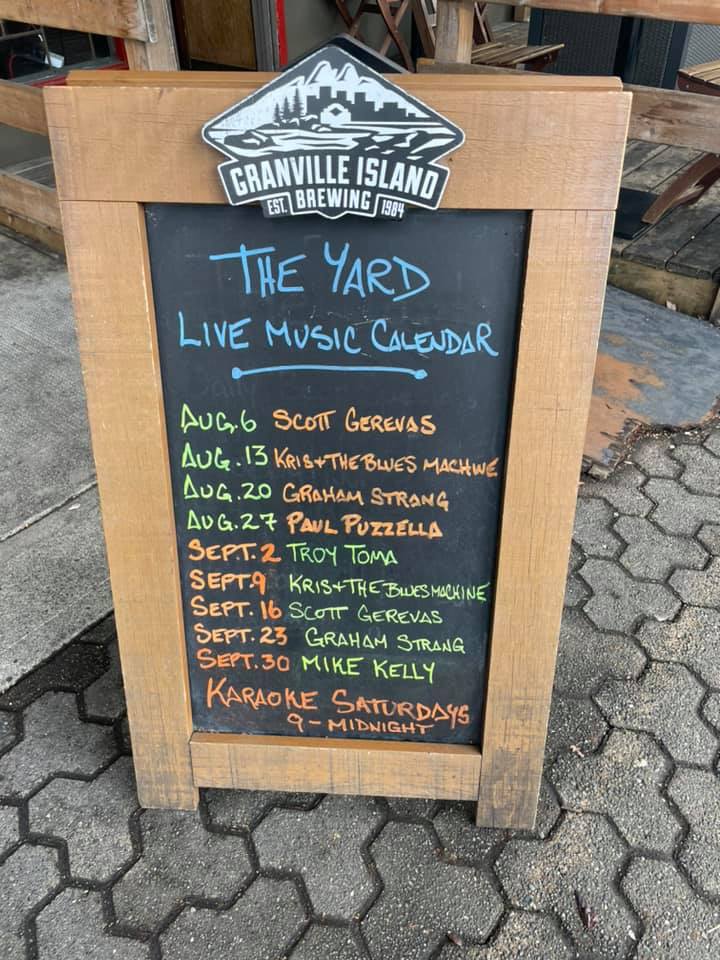 GRANVILLE ISLAND
EST. BREWING 1984
THE YARD
LIVE MUSIC CALENDAR
AUG.6 SCOTT GEREVAS
AUG.13 KRIS+THE BLUES MACHINE
AUG.20 GRAHAM STRANG
AUG.27 PAUL PUZZELLA
SEPT.2 TROY TOMA
SEPT.9 KRIS+THE BLUES MACHINE
SEPT.16 SCOTT GEREVAS
SEPT.23 GRAHAM STRANG
SEPT.30 MIKE KELLY
KARAOKE SATURDAYS
9-MIDNIGHT